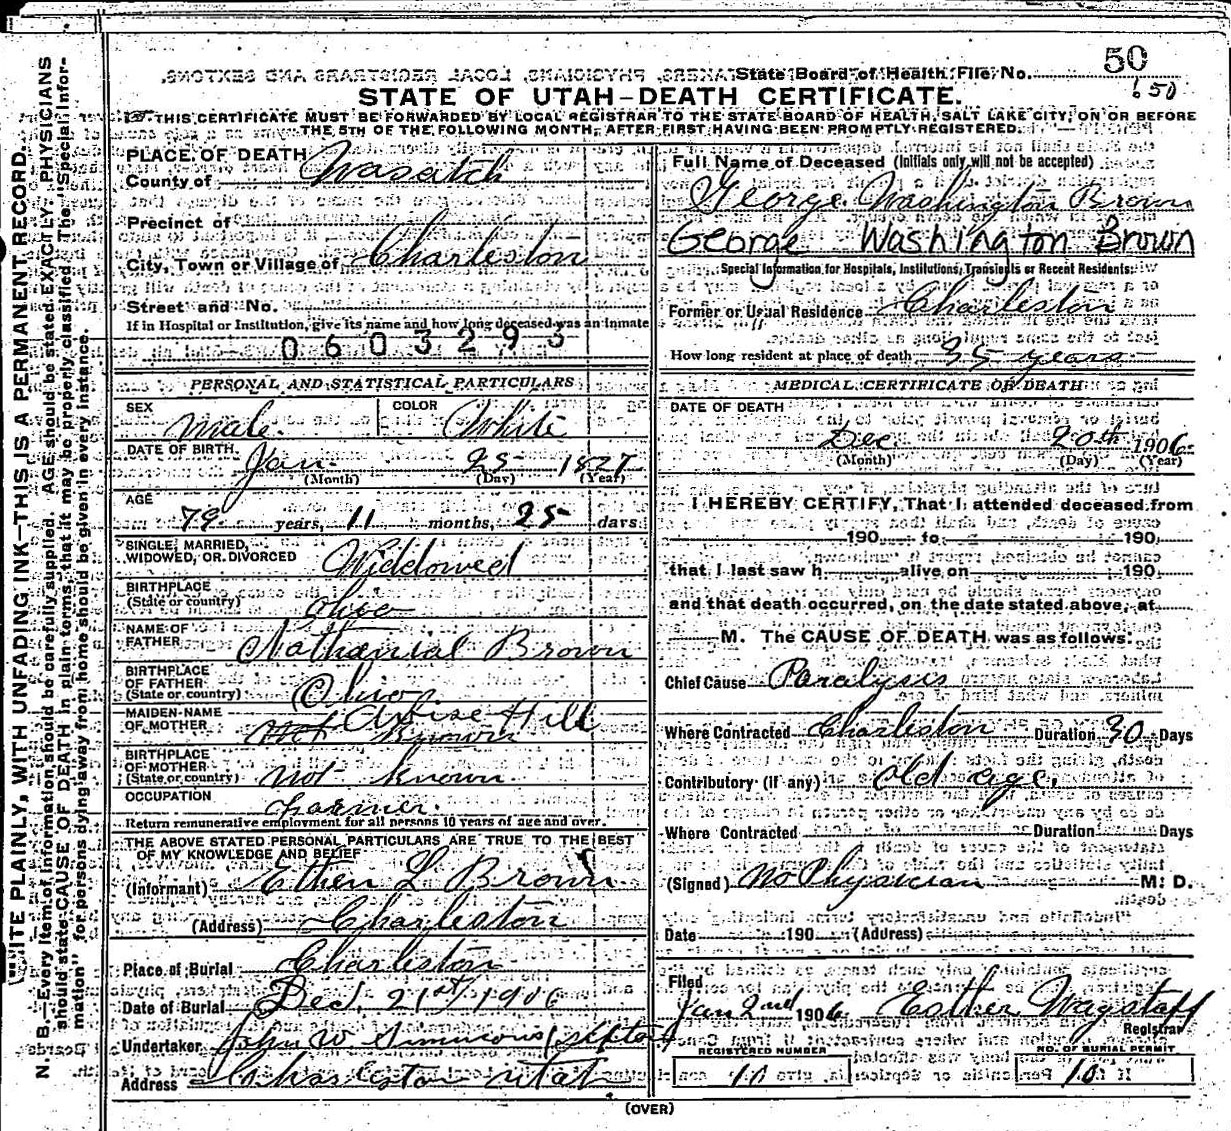 50
State Board of Health File No.
650
STATE OF UTAH—DEATH CERTIFICATE.
THIS CERTIFICATE MUST BE FORWARDED BY LOCAL REGISTRAR TO THE STATE BOARD OF HEALTH, SALT LAKE CITY, ON OR BEFORE
THE 5TH OF THE FOLLOWING MONTH, AFTER FIRST HAVING BEEN PROMPTLY REGISTERED.
WRITE PLAINLY, WITH UNFADING INK—THIS IS A PERMANENT RECORD.
N. B.—Every item of information should be carefully supplied. AGE should be stated EXACTLY. PHYSICIANS
should state CAUSE OF DEATH in plain terms, that it may be properly classified. The "Special Infor-
mation" for persons dying away from home should be given in every instance.
PLACE OF DEATH
County of Wasatch
Precinct of
City, Town or Village of Charleston
Street and No.
If in Hospital or Institution, give its name and how long deceased was an inmate
0603293
PERSONAL AND STATISTICAL PARTICULARS
SEX Male. COLOR White
DATE OF BIRTH. Jan. 25 1827
(Month) (Day) (Year)
AGE
79 years, 11 months, 25 days
SINGLE, MARRIED,
WIDOWED, OR DIVORCED Widdowed
BIRTHPLACE
(State or country) Ohio
NAME OF
FATHER Nathanial Brown
BIRTHPLACE
OF FATHER
(State or country) Ohio
MAIDEN-NAME
OF MOTHER Hill
not known
BIRTHPLACE
OF MOTHER
(State or country) not known.
OCCUPATION Farmer.
Return remunerative employment for all persons 10 years of age and over.
THE ABOVE STATED PERSONAL PARTICULARS ARE TRUE TO THE BEST
OF MY KNOWLEDGE AND BELIEF
(Informant) Ethen L Brown
(Address) Charleston
Place of Burial Charleston
Date of Burial Dec. 21st, 1906
Undertaker John W. Simmons, sexton
Address Charleston Utah
Full Name of Deceased (Initials only will not be accepted)
George Washington Brown
George Washington Brown
Special Information for Hospitals, Institutions, Transients or Recent Residents:
Former or Usual Residence Charleston
How long resident at place of death 35 years
MEDICAL CERTIFICATE OF DEATH
DATE OF DEATH
Dec. 20th 1906.
(Month) (Day) (Year)
I HEREBY CERTIFY, That I attended deceased from
190 to 190
that I last saw h alive on 190
and that death occurred, on the date stated above, at
M. The CAUSE OF DEATH was as follows:
Chief Cause Paralysis
Where Contracted Charleston Duration 30 Days
Contributory (if any) old age.
Where Contracted Duration Days
(Signed) No Physician M. D.
Date 190 (Address)
Filed
Jan 2nd 1906 Esther Wagstaff
Registrar
REGISTERED NUMBER
10
NO. OF BURIAL PERMIT
10
(OVER)